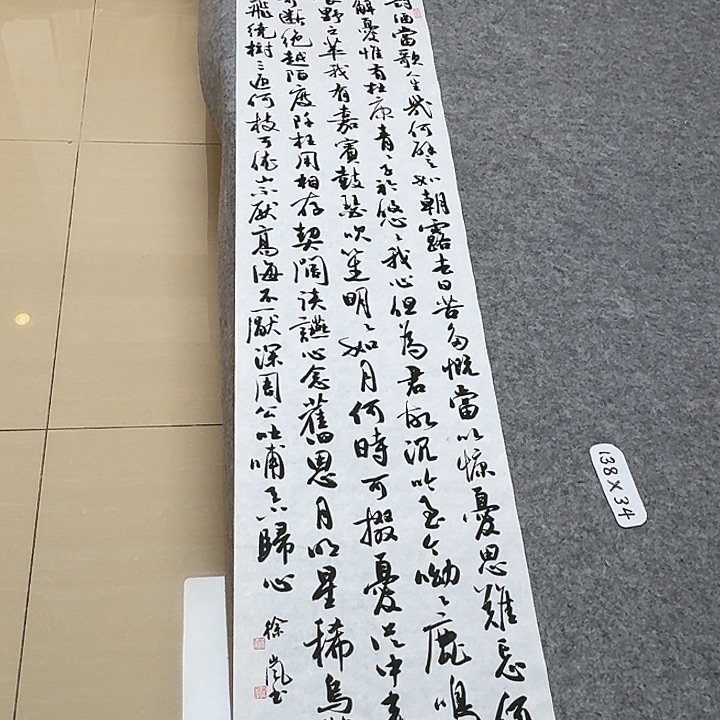 酒當歌人生幾何譬如朝露去日苦多慨當以慷憂思難忘何
解憂惟有杜康青〻子衿悠〻我心但為君故沉吟至今呦〻鹿鳴
野之苹我有嘉賓鼓瑟吹笙明〻如月何時可掇憂從中來
斷絕越陌度阡枉用相存契闊談讌心念舊恩月明星稀烏
飛繞樹三匝何枝可依山不厭高海不厭深周公吐哺天下歸心
徐嵐書
138×34